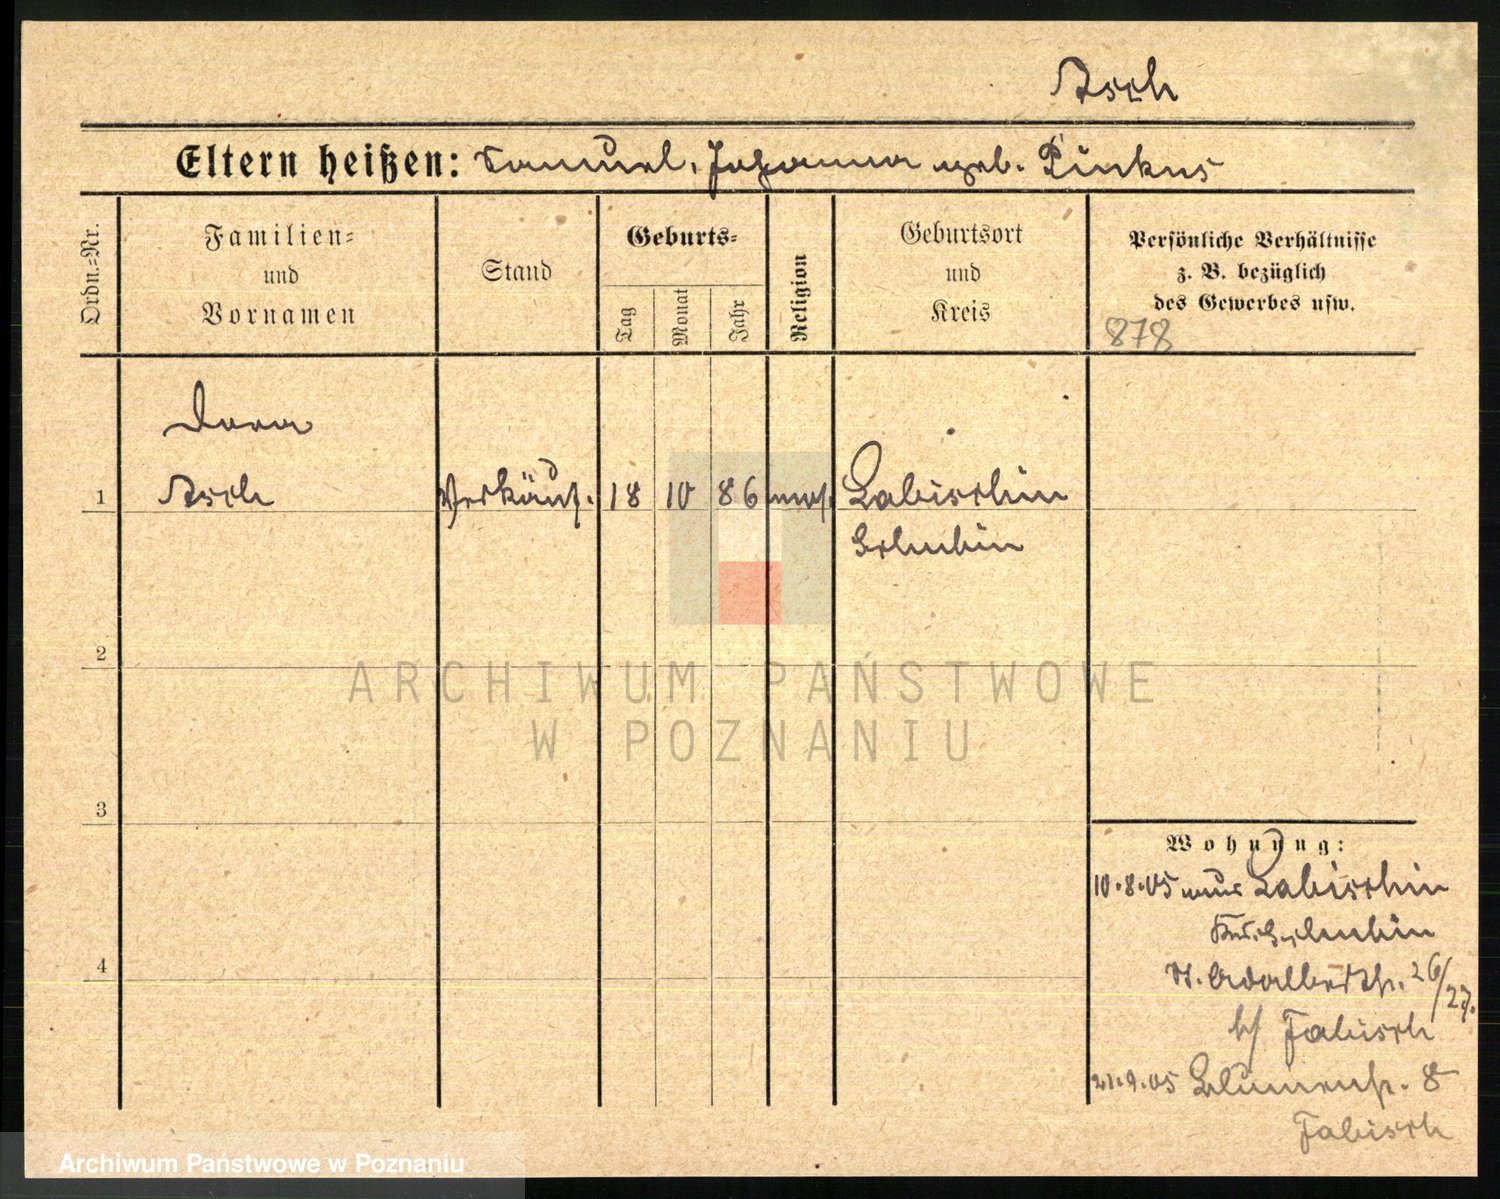 Asch
Eltern heißen: Samuel, Johanna geb. Pinkus
Ordn.=Nr.
Familien=
und
Vornamen
Stand
Geburts=
Tag
Monat
Jahr
Religion
Geburtsort
und
Kreis
Persönliche Verhältnisse
z. B. bezüglich
des Gewerbes usw.
878
Dora
1 Asch Verkäuf. 18 10 86 mos. Labischin
Schubin
2
ARCHIWUM PAŃSTWOWE
W POZNANIU
3
Wohnung:
10.8.05 aus Labischin
Krs. Schubin
4
St. Adalbertstr. 26/27.
b/ Fabisch
21.9.05 Blumenstr. 8
Fabisch
Archiwum Państwowe w Poznaniu